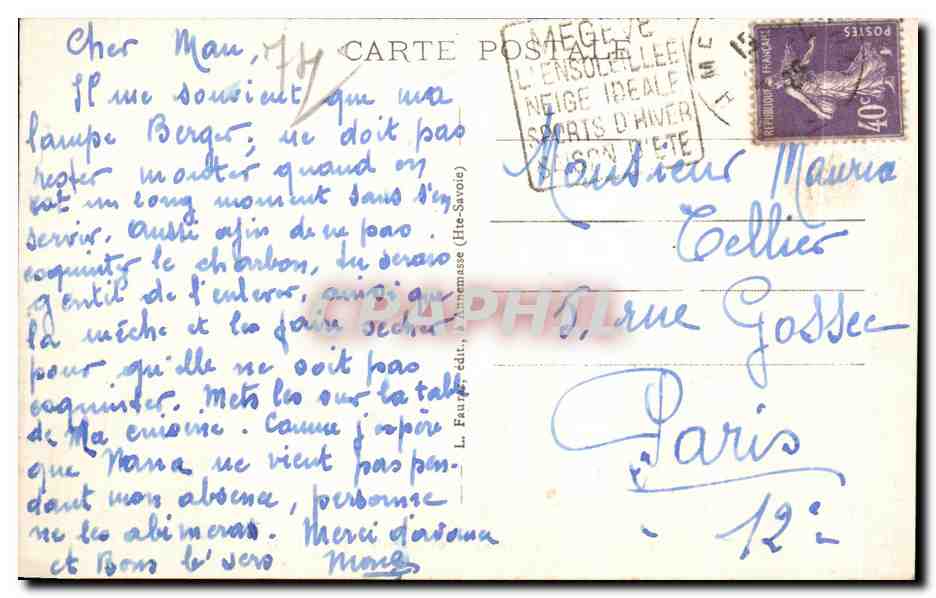 CARTE POSTALE
74
Cher Man,
Il me souvient que ma
lampe Berger, ne doit pas
rester monter quand on
est un long moment sans s'en
servir. Aussi afin de ne pas
esquinter le charbon, tu serais
gentil de l'enlever, ainsi que
la mèche et les faire sécher
pour qu'elle ne soit pas
esquinter. Mets les sur la table
de Ma cuisine. Comme j'espère
que Nana ne vient pas pen-
dant mon absence, personne
ne les abimeras. Merci d'avance
et Bons
MEGEVE
L'ENSOLEILLEE
NEIGE IDEALE
SPORTS D'HIVER
SAISON D'ETE
REPUBLIQUE FRANÇAISE
POSTES
40c
L. Fauraz, édit., Annemasse (Hte-Savoie)
CPAPHIL
Monsieur Maurice
Tellier
5, rue Gossec
Paris
12e